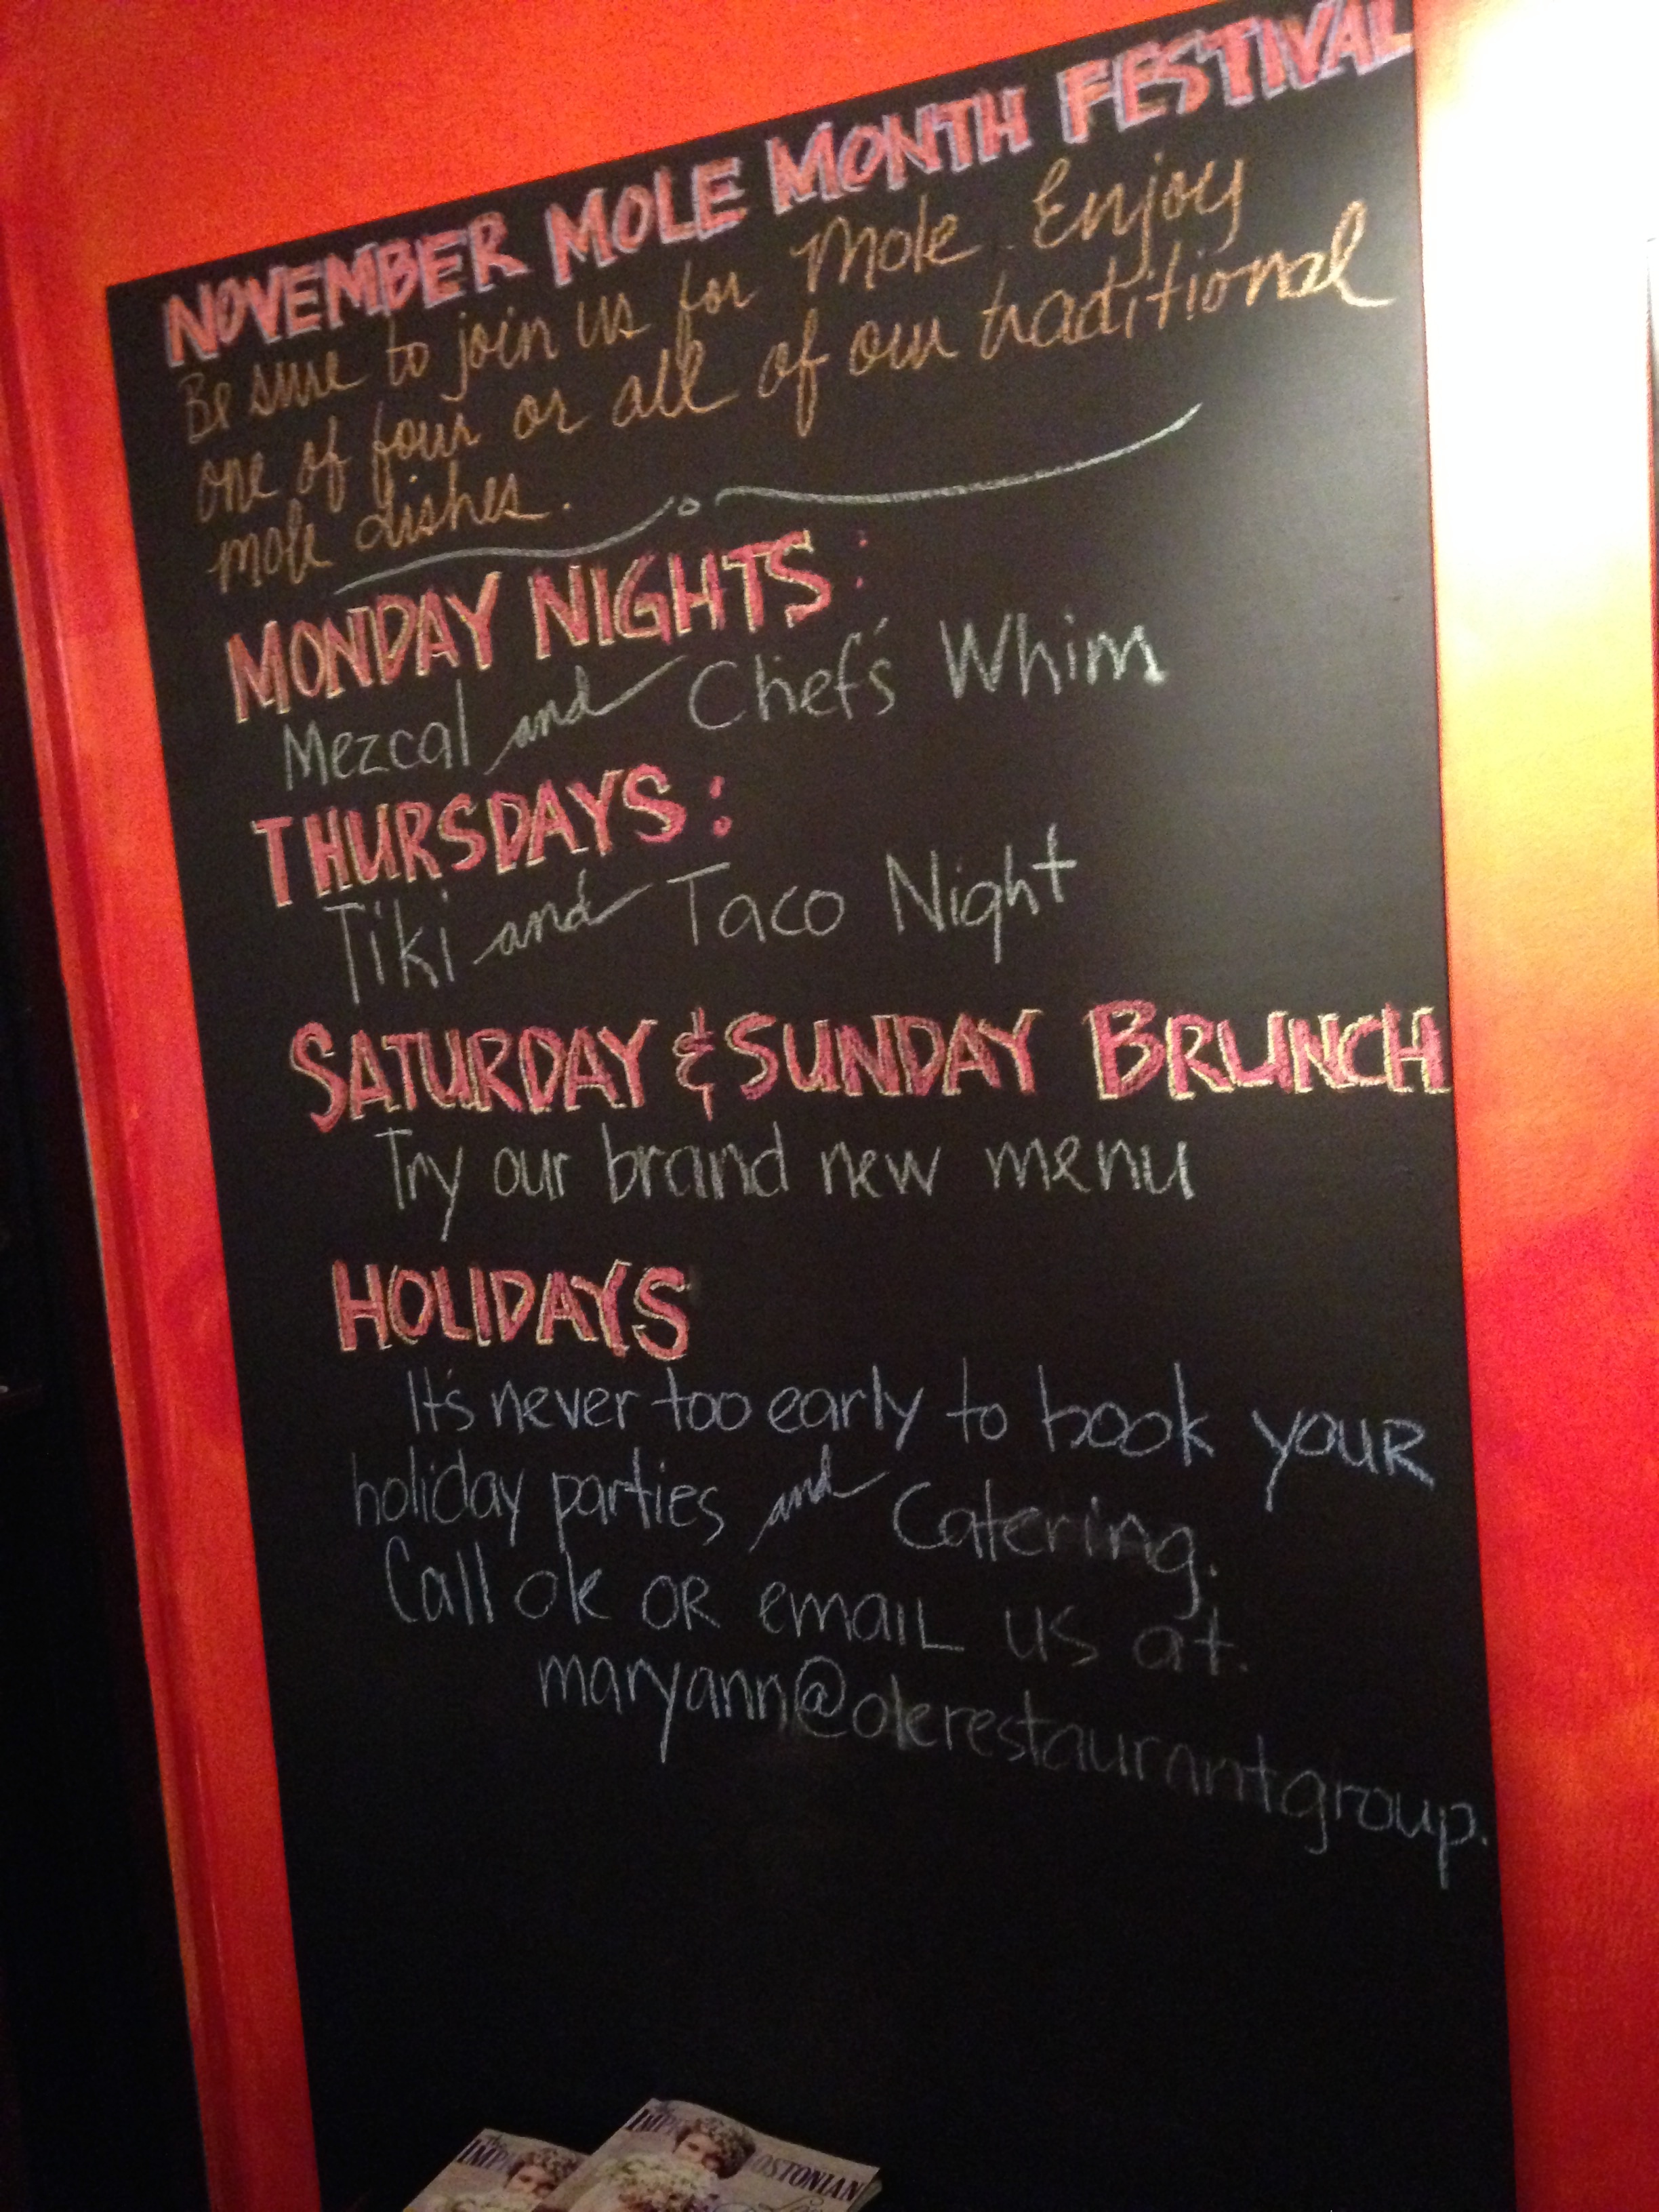 NOVEMBER MOLE MONTH FESTIVAL
Be sure to join us for Mole. Enjoy
one of four or all of our traditional
mole dishes.
MONDAY NIGHTS:
Mezcal and Chef's Whim
THURSDAYS:
Tiki and Taco Night
SATURDAY & SUNDAY BRUNCH
Try our brand new menu
HOLIDAYS
It's never too early to book your
holiday parties and Catering.
Call ok OR email us at.
maryann@olerestaurantgroup.
The IMP
The IMP OSTONIAN